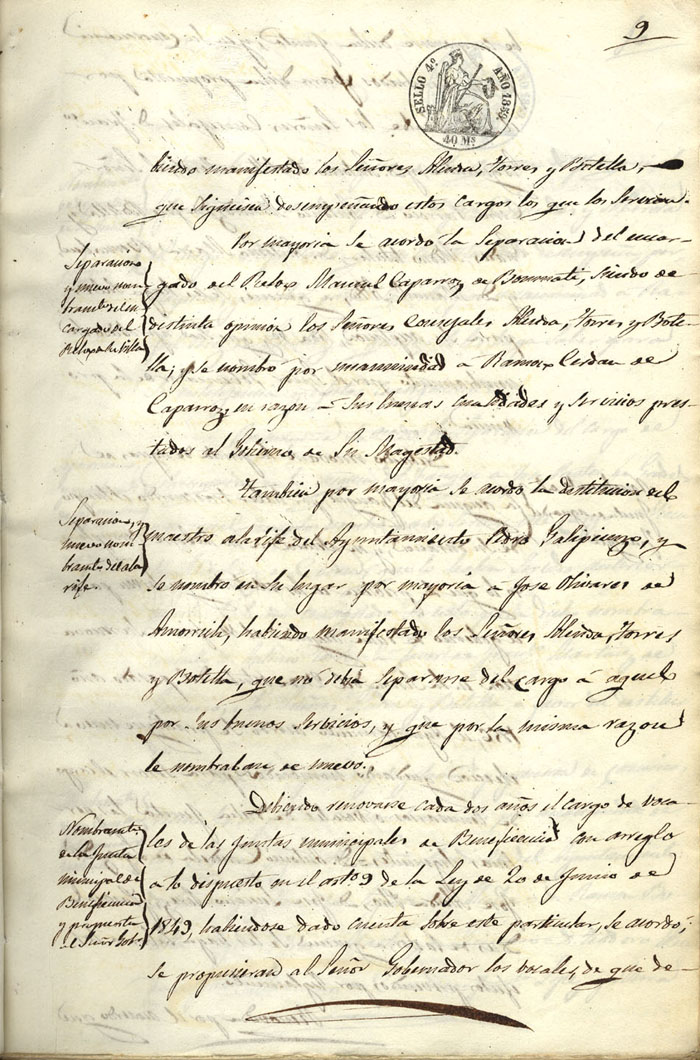 9
SELLO 4º AÑO 1857
40 Ms
biendo manifestado los Señores Alenda, Torres y Botella,
que siguiesen desempeñando estos cargos los que los servian.
Por mayoria se acordo la Separacion del encar-
gado del Relox Manuel Caparroz de Bonmati, siendo de
distinta opinion los Señores Concejales Alenda, Torres y Bote-
lla; y se nombro por unanimidad a Ramon Cerdan de
Caparroz en razon a sus buenas cualidades y servicios pres-
tados al Gobierno de Su Magestad.
Separacion
y nuevo nom
bramto del en
cargado del
Relox de la Villa
Tambien por mayoria se acordo la destitucion del
maestro alarife del Ayuntamiento Pedro Galipienzo, y
se nombro en su lugar por mayoria a Jose Olivares de
Amorrich, habiendo manifestado los Señores Alenda, Torres
y Botella, que no debia separarse del cargo á aquel
por sus buenos servicios, y que por la misma razon
le nombraban de nuevo.
Separacion y
nuevo nom
bramto del ala
rife.
Debiendo renovarse cada dos años el cargo de voca-
les de las Juntas municipales de Beneficencia con arreglo
a lo dispuesto en el artº 9 de la Ley de 20 de Junio de
1849, habiendose dado cuenta sobre este particular, se acordó;
se propusieran al Señor Gobernador los vocales, de que de-
Nombramto
de la Junta
municipal de
Beneficencia
y propuesta
al Señor Gobr